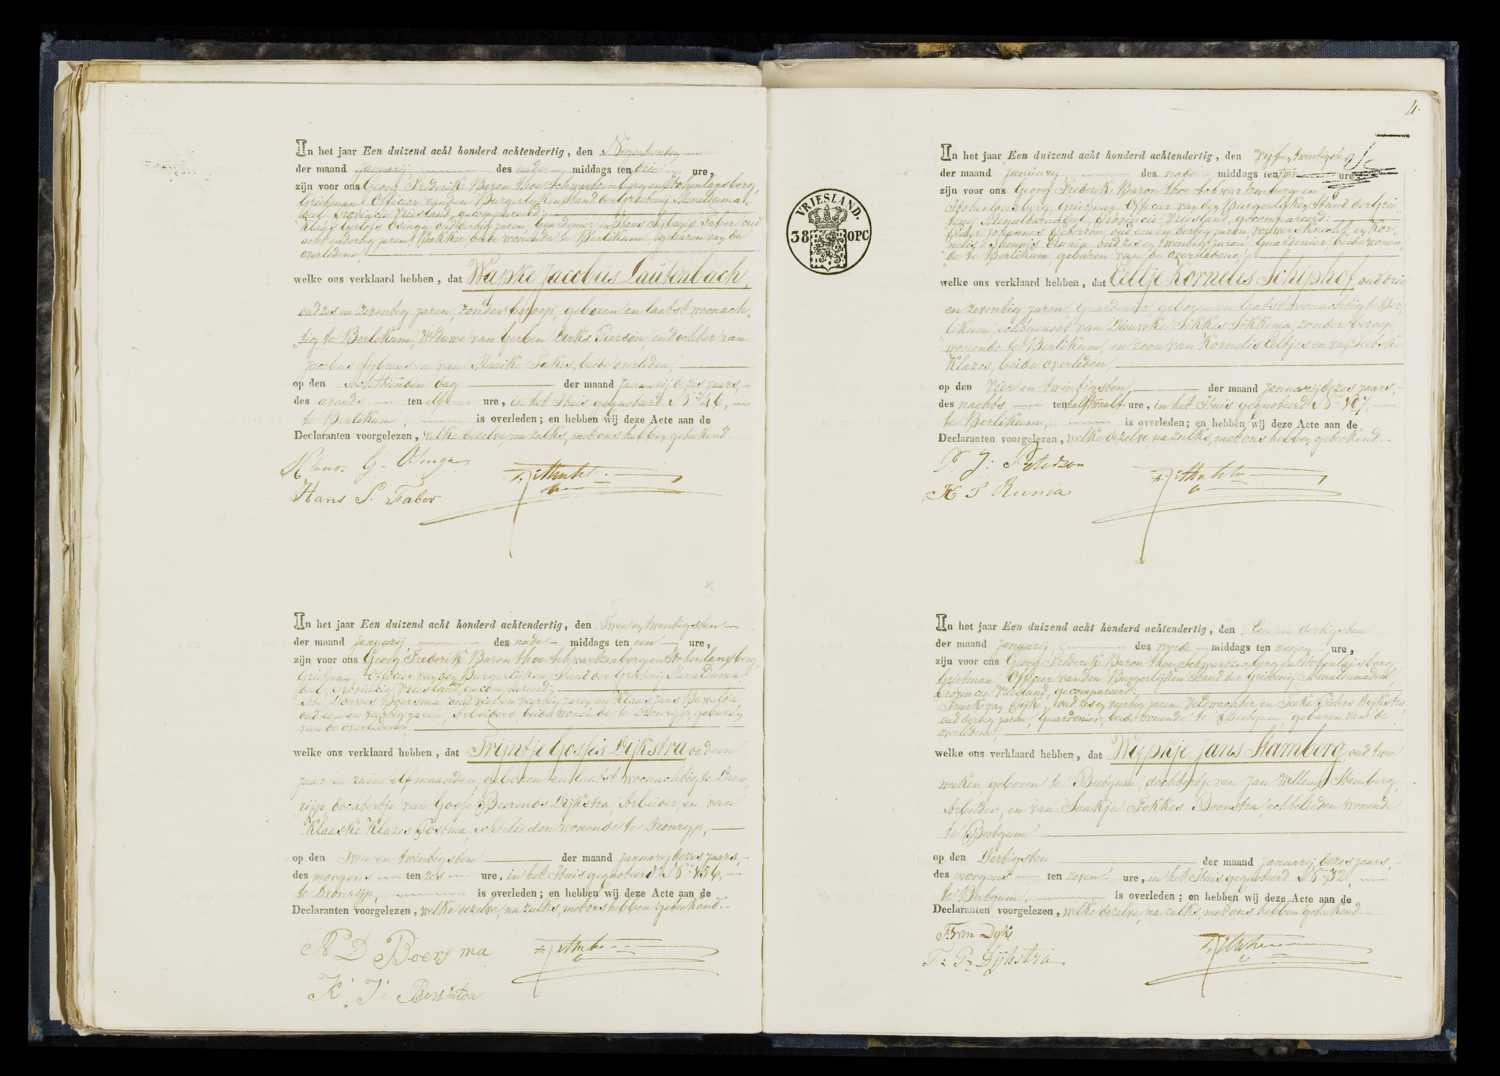 In het jaar Een duizend acht honderd achtendertig, den Negentienden
der maand januarij des nade middags ten drie ure,
zijn voor ons Georg Frederik Baron thoe Schwartzenberg en Hohenlansberg,
Grietman Officier van den Burgerlijken Stand der Grietenij Menaldumadeel,
Provincie Vriesland, gecompareerd
Klaas Gerlofs Osinga, oud dertig jaren, en Hans Faber oud
achtendertig jaren, Bakker, beide wonende te Berlikum, geburen van de
overledene
welke ons verklaard hebben, dat Wapke Jacobus Lautenbach,
oud zes en zeventig jaren, zonder beroep, geboren en laatst woonach-
tig te Berlikum, Weduwe van Gerben Derks Pierson, en dochter van
Jacobus Sybrens en van Maaik Tekes, beide overleden,
op den achttienden dag der maand januarij dezes jaars,
des avonds ten elf ure, in het Huis gequoteerd No 46,
te Berlikum, is overleden; en hebben wij deze Acte aan de
Declaranten voorgelezen, welke dezelve, na zulks, met ons hebben geteekend.
Klaas G. Osinga
Hans S. Faber
In het jaar Een duizend acht honderd achtendertig, den Twee en twintigsten
der maand januarij des nade middags ten een ure,
zijn voor ons Georg Frederik Baron thoe Schwartzenberg en Hohenlansberg,
Grietman, Officier van den Burgerlijken Stand der Grietenij Menalduma-
deel, Provincie Vriesland, gecompareerd
Douwes Boersma oud vier en veertig jaren en Klaas Jans Bewinda
oud een en veertig jaren, Arbeiders beide wonende te Dronrijp, geburen
van de overledene
welke ons verklaard hebben, dat Trijntje Gosses Dijkstra oud een
jaar en ruim elf maanden, geboren en laatst woonachtig te Dron-
rijp, dochtertje van Gosse Beerends Dijkstra, Arbeider, en van
Klaaske Klazes Postma, echtelieden wonende te Dronrijp,
op den Twee en twintigsten der maand januarij dezes jaars,
des morgens ten zes ure, in het Huis gequoteerd No 156,
te Dronrijp, is overleden; en hebben wij deze Acte aan de
Declaranten voorgelezen, welke dezelve, na zulks, met ons hebben geteekend.
D Boersma
K. J. Bewinda
4.
VRIESLAND.
38 OPC
In het jaar Een duizend acht honderd achtendertig, den Vijf en twintigsten
der maand januarij des nade middags ten ure
zijn voor ons Georg Frederik Baron thoe Schwartzenberg en
Hohenlansberg, Grietman Officier van den Burgerlijken Stand der Griet-
enij Menaldumadeel, Provincie Vriesland, gecompareerd
Pieter Johannes Peterzon, oud een en dertig jaren, en Kor-
nelis Runia oud zes en twintig jaren, Gardenier beide wonen-
de te Berlikum geburen van de overledene
welke ons verklaard hebben, dat Eeltje Kornelis Schiphof, oud drie
en zeventig jaren, Gardenier, geboren en laatst woonachtig te Ber-
likum, echtgenoot van Dieuwke Sekkes Sekkema, zonder beroep
wonende te Berlikum, en zoon van Kornelis Eeltjes en van
Klazes, beide overleden,
op den Vier en twintigsten der maand januarij dezes jaars,
des nachts ten half twaalf ure, in het Huis gequoteerd No 107
te Berlikum, is overleden; en hebben wij deze Acte aan de
Declaranten voorgelezen, welke dezelve, na zulks, met ons hebben geteekend.
P J: Peterzon
K P Runia
In het jaar Een duizend acht honderd achtendertig, den Een en dertigsten
der maand januarij des voorde middags ten negen ure,
zijn voor ons Georg Frederik Baron thoe Schwartzenberg en Hohenlansberg,
Grietman Officier van den Burgerlijken Stand der Grietenij Menaldumadeel,
Provincie Vriesland, gecompareerd
van Dijk, oud zes en veertig jaren, Veldwachter en Dijkstra
oud dertig jaren, Gardenier, beide wonende te Beetgum, geburen van de
overledene
welke ons verklaard hebben, dat Wypkje Jans Hamborg, oud twee
weken geboren te Beetgum, dochtertje van Jan Willems Hamburg
Arbeider, en van Saakje Sekkes Boonstra, echtelieden wonende
te Beetgum
op den Dertigsten der maand januarij dezes jaars,
des morgens ten zeven ure, in het Huis gequoteerd No 32,
te Beetgum, is overleden; en hebben wij deze Acte aan de
Declaranten voorgelezen, welke dezelve, na zulks, met ons hebben geteekend.
F van Dijk
Dijkstra